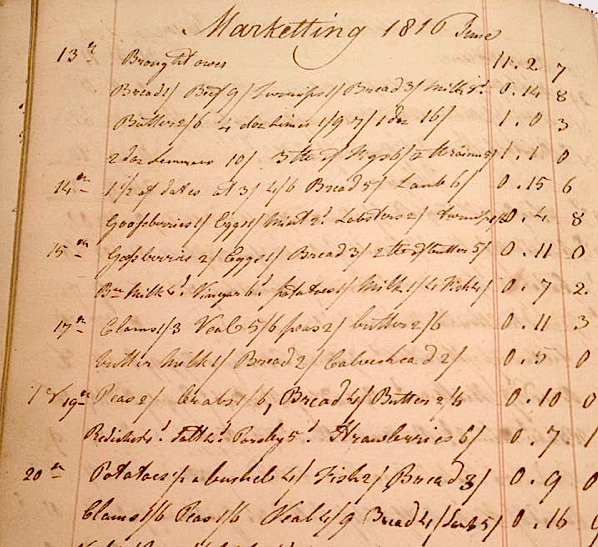 Marketting 1816 June
13th Brought over 11.2 7
Bread 1/ Beef 9/ Turnips 1/ Bread 3/ Milk 8d 0.14 8
Butter 2/6 4 doz 1/9 7/ 1 doz 16/ 1.0 3
2 doz Lemmons 10/ 3 lb of Figs 6/ 2 lb raisins 5/ 1.1 0
14th 1 1/2 of dates at 3/ 4/6 Bread 5/ Lamb 6/ 0.15 6
Goosberries 1/ Eggs 1/ Mint 2d Lobsters 2/ Turnips 0.4 8
15th Goosberries 2/ Eggs 1/ Bread 3/ 2 lb of butter 5/ 0.11 0
Br Milk 4d Vinegar 6d potatoes 1/ Milk 1/4 Fish 4/ 0.7 2
17th Clams 1/3 Veal 5/6 peas 2/ butter 2/6 0.11 3
butter Milk 1/ Bread 2/ Calveshead 2/ 0.5 0
19th Peas 2/ Crabs 1/6, Bread 4/ Butter 2/6 0.10 0
Radishes 4d Salt 4d Parsley 5d Strawberries 6/ 0.7 1
20th Potatoes 1/2 a bushel 4/ Fish 2/ Bread 3/ 0.9 0
Clams 1/6 Peas 1/6 Veal 4/9 Bread 4/ 5/ 0.16 9